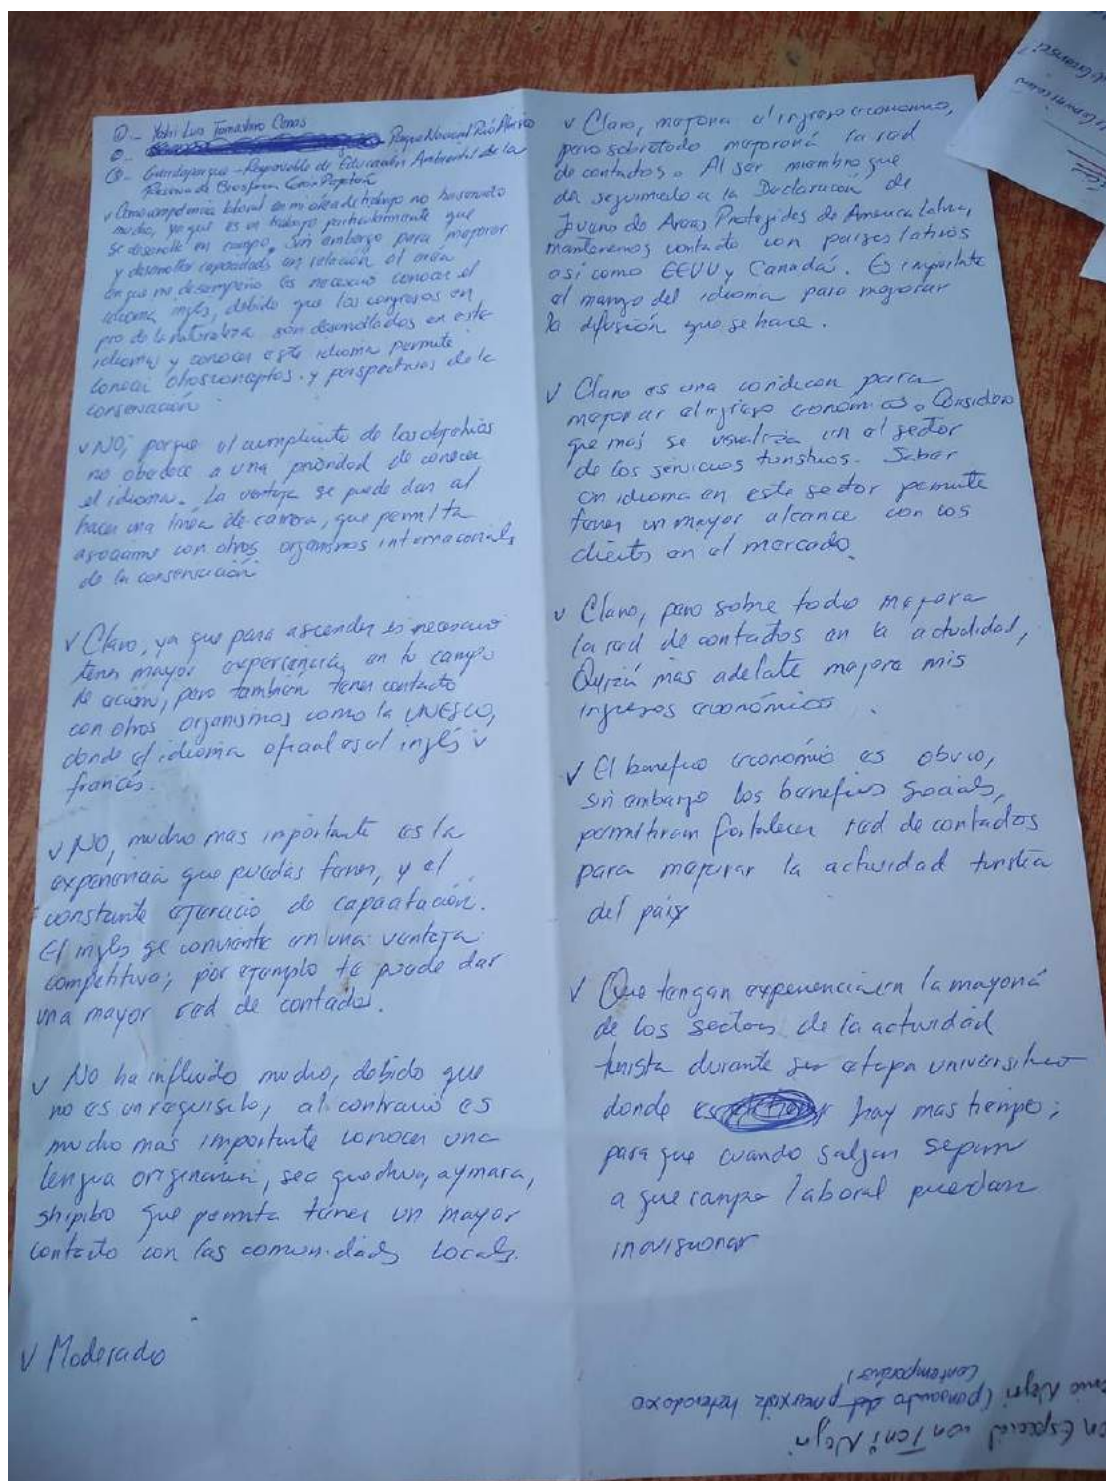 ① - Yohi Luis Tomastro Cenas
② - Parque Nacional Río Abiseo
③ - Guardaparque - Responsable de Educación Ambiental de la
Reserva de Biosfera Gran Pajatén
√ Como competencia laboral en mi area de trabajo no ha servido
mucho, ya que es un trabajo particularmente que
se desarrolle en campo. Sin embargo para mejorar
y desarrollar capacidades en relación al area
en que me desempeño es necesario conocer el
idioma inglés, debido que los congresos en
pro de la naturaleza son desarrollados en este
idioma y conocer este idioma permite
conocer otros conceptos y perspectivas de la
conservación
√ NO, porque el cumplimiento de los objetivos
no obedece a una prioridad de conocer
el idioma. La ventaja se puede dar al
hacer una línea de carrera, que permita
asociarme con otros organismos internacionales
de la conservación
√ Claro, ya que para ascender es necesario
tener mayor experiencia en tu campo
de acción, pero también tener contacto
con otros organismos como la UNESCO,
donde el idioma oficial es el inglés y
francés.
√ NO, mucho mas importante es la
experiencia que puedas tener, y el
constante ejercicio de capacitación.
El ingles se convierte en una ventaja
competitiva; por ejemplo te puede dar
una mayor red de contactos.
√ No ha influido mucho, debido que
no es un requisito, al contrario es
mucho mas importante conocer una
lengua originaria, sea quechua, aymara,
shipibo que permita tener un mayor
contacto con las comunidads locals.
√ Moderado
√ Claro, mejora el ingreso economico,
pero sobretodo mejorará la red
de contactos. Al ser miembro que
da seguimiento a la Declaración de
Jovenes de Areas Protegidas de America Latina,
mantenemos contacto con paises latinos
así como EEUU y Canadá. Es importante
el manejo del idioma para mejorar
la difusión que se hace.
√ Claro es una condicion para
mejorar el ingreso económico. Considero
que mas se visualiza en el sector
de los servicios turisticos. Saber
un idioma en este sector permite
tener un mayor alcance con los
clientes en el mercado.
√ Claro, pero sobre todo mejora
la red de contactos en la actualidad,
Quizá mas adelate mejore mis
ingresos económicos.
√ El beneficio económico es obvio,
sin embargo los beneficios sociales,
permitiran fortalecer red de contactos
para mejorar la actividad turística
del país
√ Que tengan experiencia en la mayoria
de los sectores de la actividad
turista durante su etapa universitaria
donde hay mas tiempo;
para que cuando salgan sepan
a que campo laboral puedan
inovisionar
on Especial con Toni Negri
Negri (pensando del marxista heterodoxo
contemporáneo)